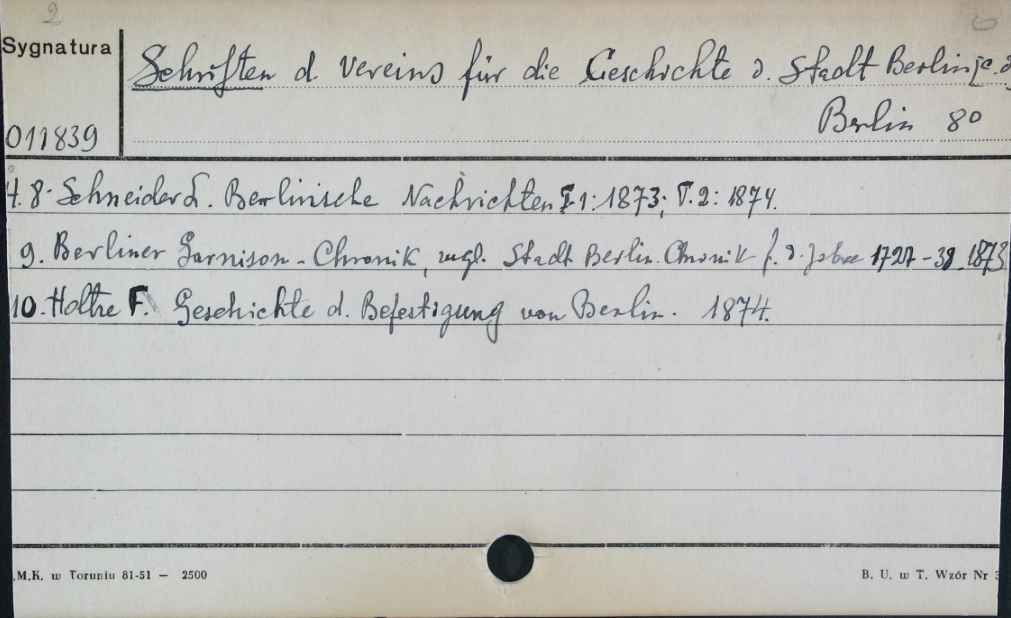 2
Sygnatura
Schriften d. Vereins für die Geschichte d. Stadt Berlin
Berlin 8°
011839
H. 8. Schneider L. Berlinische Nachrichten T. 1: 1873; T. 2: 1874.
9. Berliner Garnison-Chronik, zugl. Stadt Berlin. Chronik f. d. Jahre 1727-39. 1873
10. Holtze F. Geschichte d. Befestigung von Berlin. 1874.
.M.K. w Toruniu 81-51 — 2500
B. U. w T. Wzór Nr